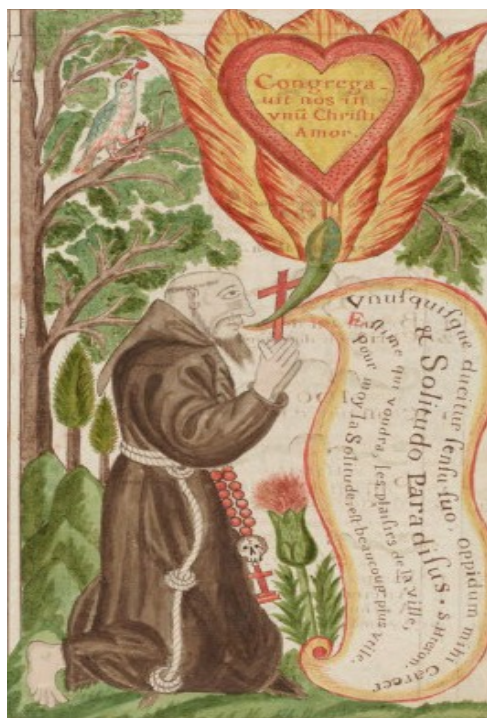 Congrega-
uit nos in
vnũ Chriſti
Amor.
Vnuſquiſque ducitur ſenſu ſuo. Oppidum mihi Carcer
& Solitudo Paradiſus. S. Hieron.
Eſtime qui voudra, les plaiſirs de la Ville,
Pour moy la Solitude, eſt beaucoup plus vtile.